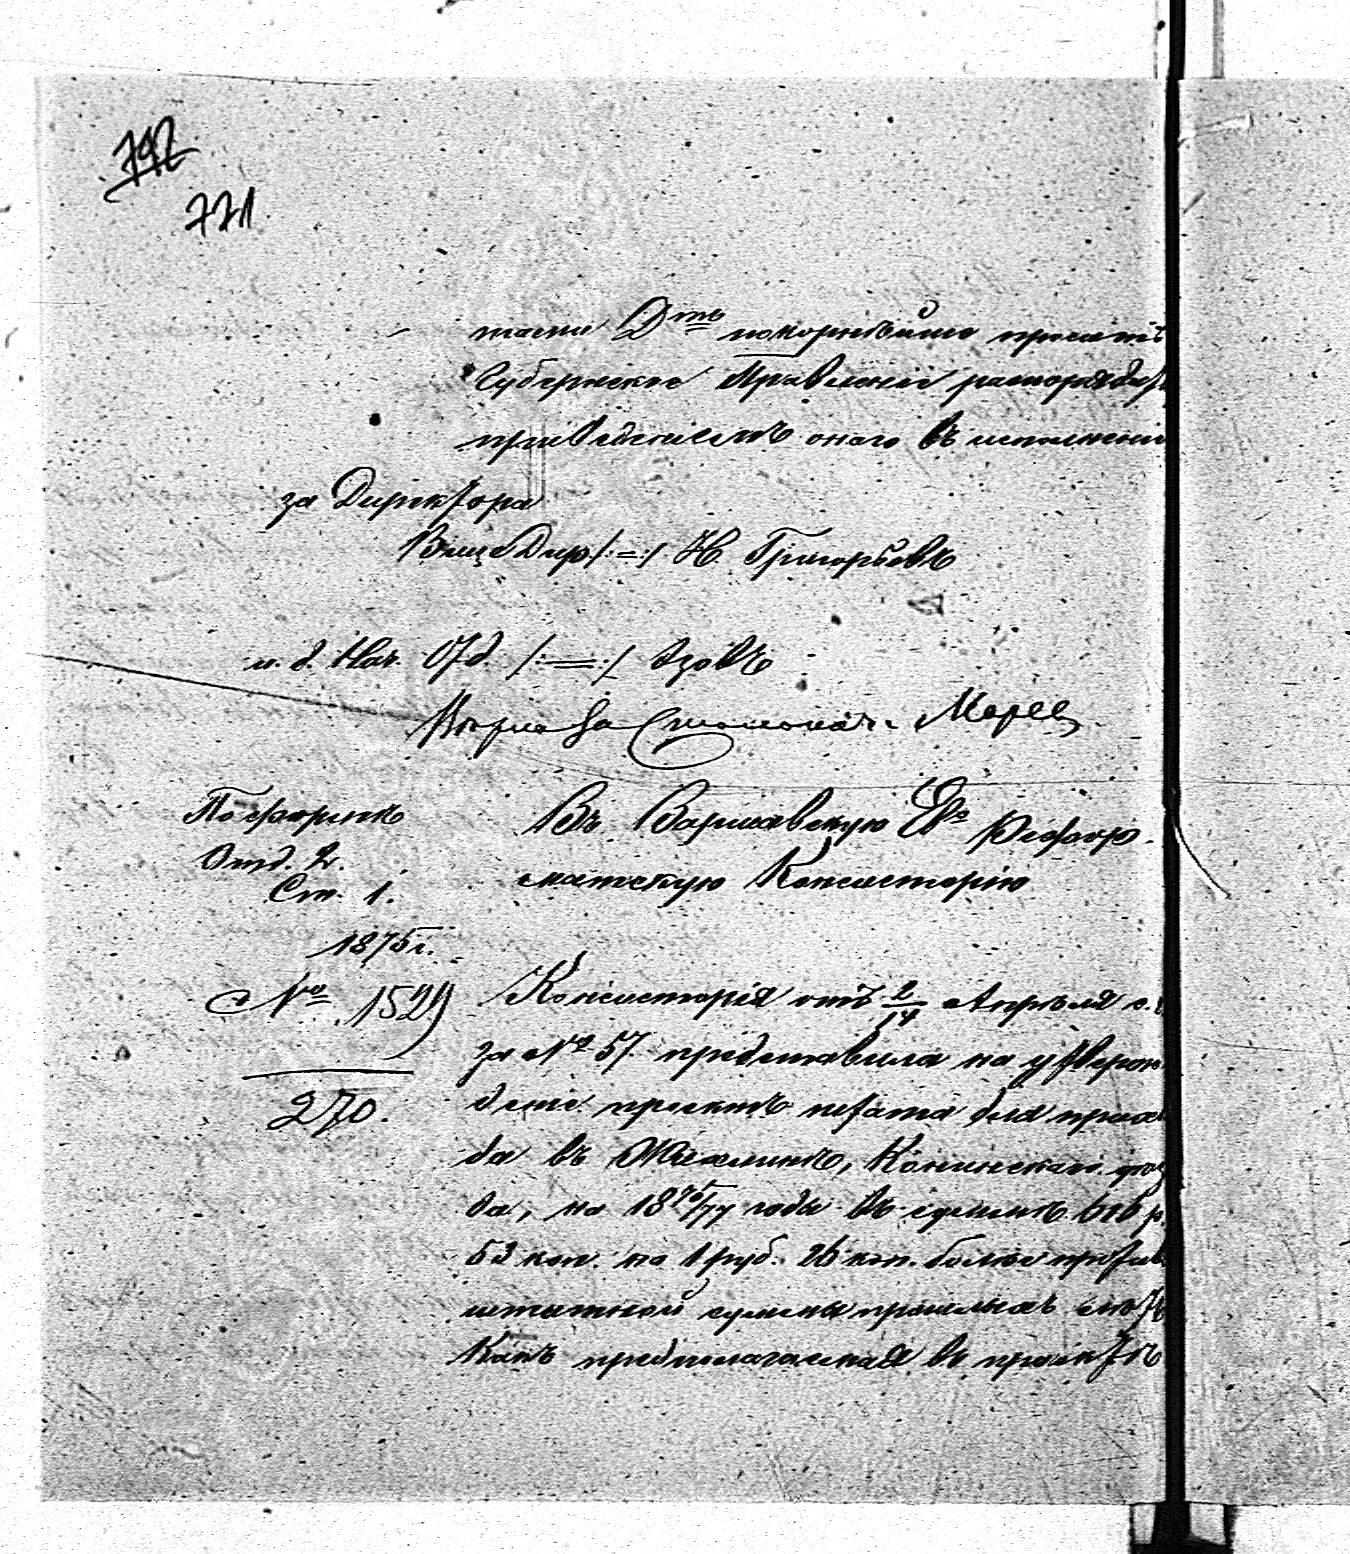 792
771
Д-тъ покорнѣйше проситъ
Губернское Правленіе распоряд
приведеніемъ онаго въ исполненіе
за Директора
Вице Дир /:=:/ Н. Григорьевъ
и. д. Нач. Отд. /:=:/ Азовъ
Вѣрно За Столонач.
По формѣ
Отд. 2.
Ст. 1.
1875 г.
№ 1529
270.
Въ Варшавскую Ев. Рефор-
матскую Консисторію
Консисторія отъ 2/14 Апрѣля с.
за № 57. представила на утверж
деніе проектъ штата для прихо
да въ Жихлинѣ, Конинскаго уѣз
да, на 1875/77 годы въ суммѣ р.
53 коп. на 1 руб. 26 коп. болѣе против
штатной суммы прошлыхъ лѣтъ
Какъ предполагаемая въ проектѣ